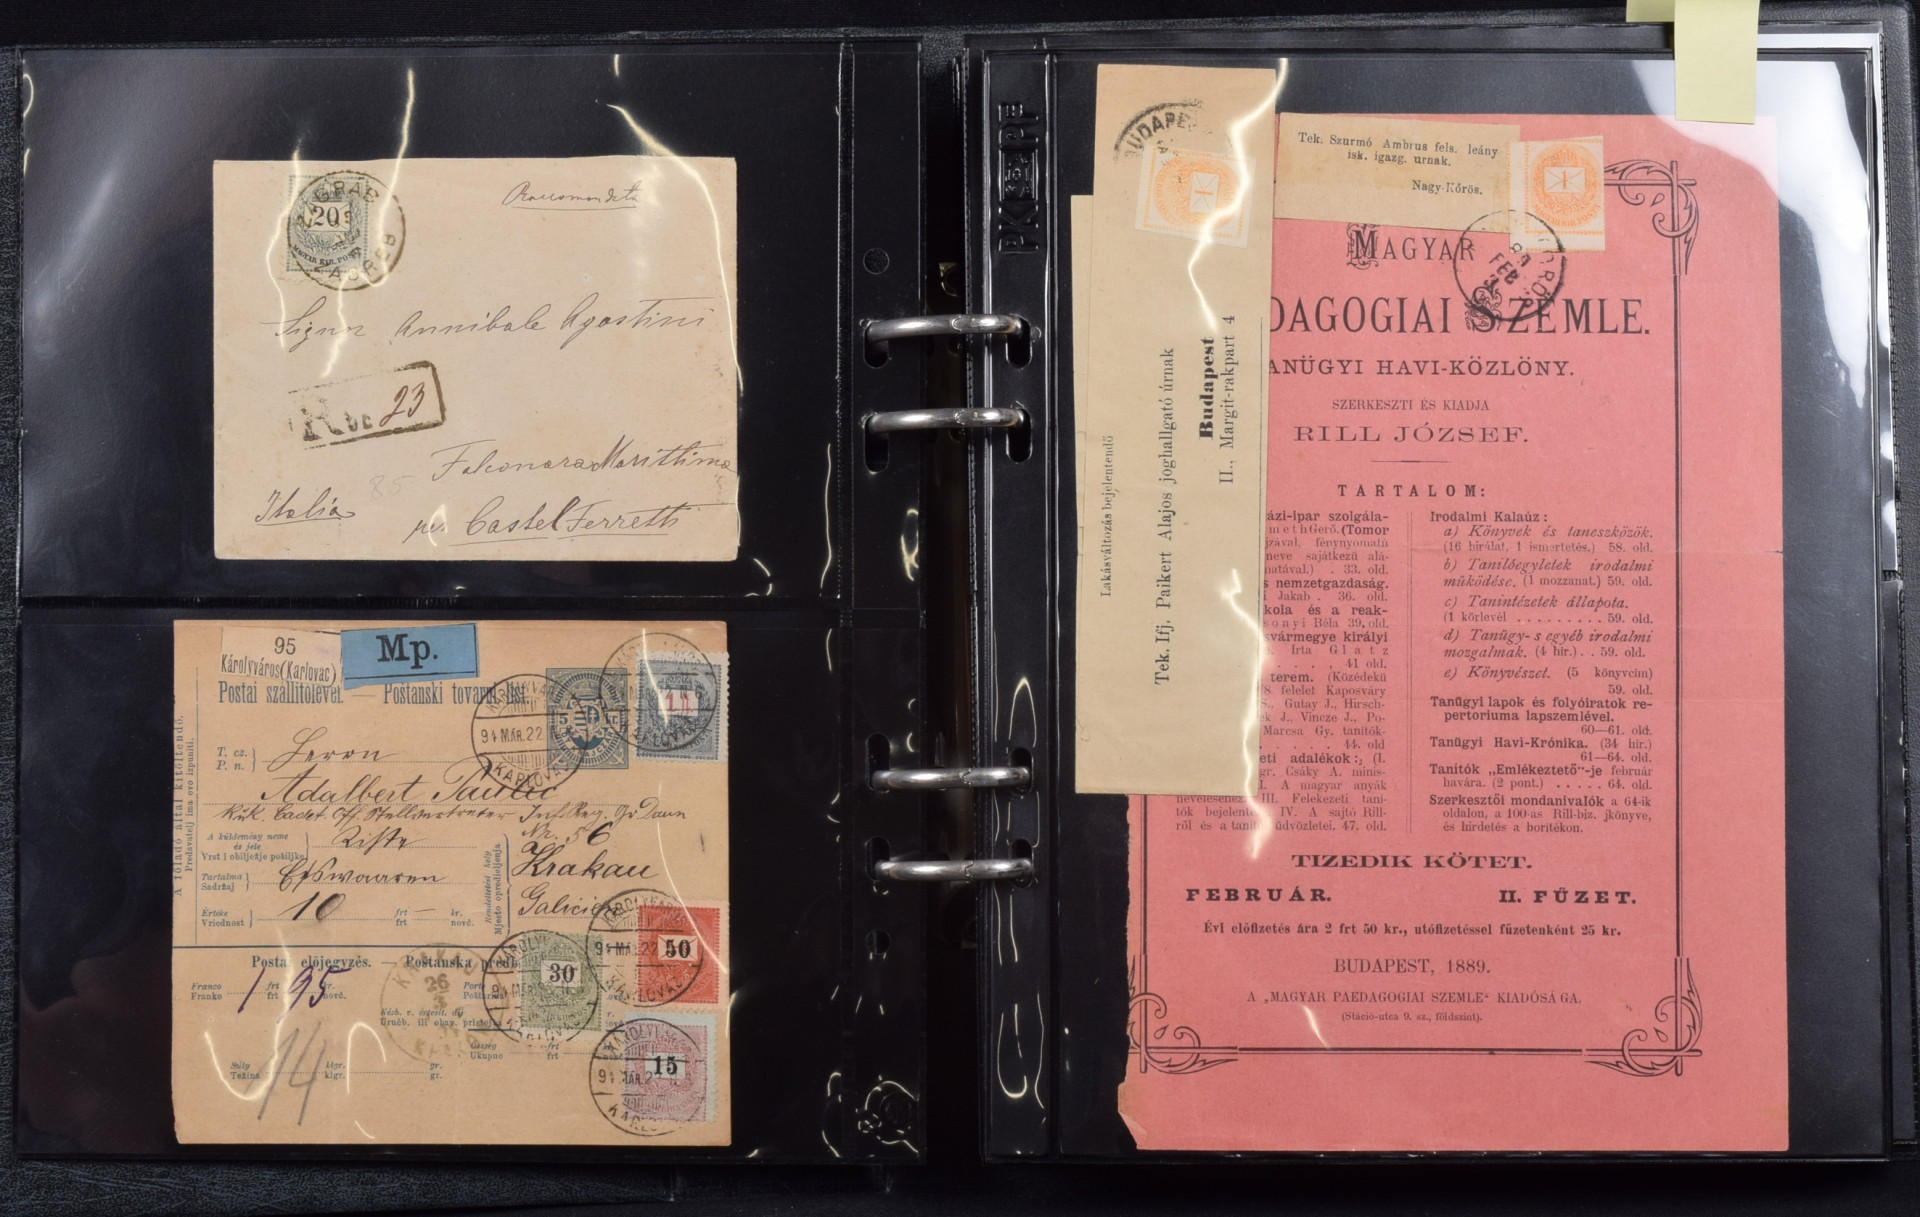 Recommandata
ZAGRAB
20
MAGYAR KIR. POSTA
ZAGREB
Signor Annibale Agostini
R
23
Falconara Marittima
85
Italia
per Castel Ferretti
95
Károlyváros(Karlovac)
Mp.
Postai szállítólevél. — Poštanski tovarni list.
5 kr.
1 ft.
94 MÁR. 22
KARLOVAC
A föladó által kitöltendő.
Predavatelj ima ovo izpuniti.
T. cz.
P. n.
Herrn
Adalbert Paulic
Infanterie Reg. Gr Daun
Nr. 56
A küldemény neme
és jele
Vrst i obilježje pošiljke
Kiste
Krakau
Tartalma
Sadržaj
Esswaaren
Galicien
Rendeltetési hely
Mjesto opredieljenja
Érték
Vriednost
10
frt — kr.
frt novč.
Postai előjegyzés. — Poštanska predb
Franco
Franko
1 frt 95 kr.
novč.
Porto
26
3
Késb. v. értesít. díj
Összeg
Ukupno
frt
frt
Súly
Težina
14
klgr.
klgr.
gr.
gr.
30
94 MÁR. 22
50
94 MÁR. 22
KARLOVAC
15
94 MÁR. 22
PK
BUDAPE
1
Lakásváltozás bejelentendő
Tek. Ifj. Paikert Alajos joghallgató úrnak
Budapest
II., Margit-rakpart 4
Tek. Szurmó Ambrus fels. leány
isk. igazg. urnak.
Nagy-Kőrös.
1
89
FEB
MAGYAR
DAGOGIAI SZEMLE.
ANÜGYI HAVI-KÖZLÖNY.
SZERKESZTI ÉS KIADJA
RILL JÓZSEF.
TARTALOM:
ázi-ipar szolgála-
methGerő.(Tomor
jzával, fénynyomatú
neve sajátkezü alá-
natával.) . 33. old.
s nemzetgazdaság.
i Jakab . 36. old.
kola és a reak-
sonyi Béla 39. old.
svármegye királyi
e. Irta Glatz
41 old.
terem. (Közédekü
8 felelet Kaposváry
S., Gutay J., Hirsch-
ek J., Vincze J., Po-
Marcsa Gy. tanitók-
44. old
eti adalékok: (I.
gr. Csáky A. minis-
I. A magyar anyák
neveléséhez III. Felekezeti tani-
tók bejelentése IV. A sajtó Rill-
ről és a tanítói üdvözletei. 47. old.
Irodalmi Kalaúz:
a) Könyvek és taneszközök.
(16 birálat, 1 ismertetés.) 58. old.
b) Tanítóegyletek irodalmi
müködése. (1 mozzanat.) 59. old.
c) Tanintézetek állapota.
(1 körlevél . . . . . . . . . 59. old.
d) Tanügy- s egyéb irodalmi
mozgalmak. (4 hír.) . . 59. old.
e) Könyvészet. (5 könyvcím)
59. old.
Tanügyi lapok és folyóiratok re-
pertoriuma lapszemlével.
60—61. old.
Tanügyi Havi-Krónika. (34 hír.)
61—64. old.
Tanítók „Emlékeztető"-je február
havára. (2 pont.) . . . . . 64. old.
Szerkesztői mondanivalók a 64-ik
oldalon, a 100-as Rill-biz. jkönyve,
és hirdetés a boritékon.
TIZEDIK KÖTET.
FEBRUÁR.
II. FŰZET.
Évi előfizetés ára 2 frt 50 kr., utófizetéssel füzetenként 25 kr.
BUDAPEST, 1889.
A „MAGYAR PAEDAGOGIAI SZEMLE" KIADÓSÁGA.
(Stáció-utca 9. sz., földszint).